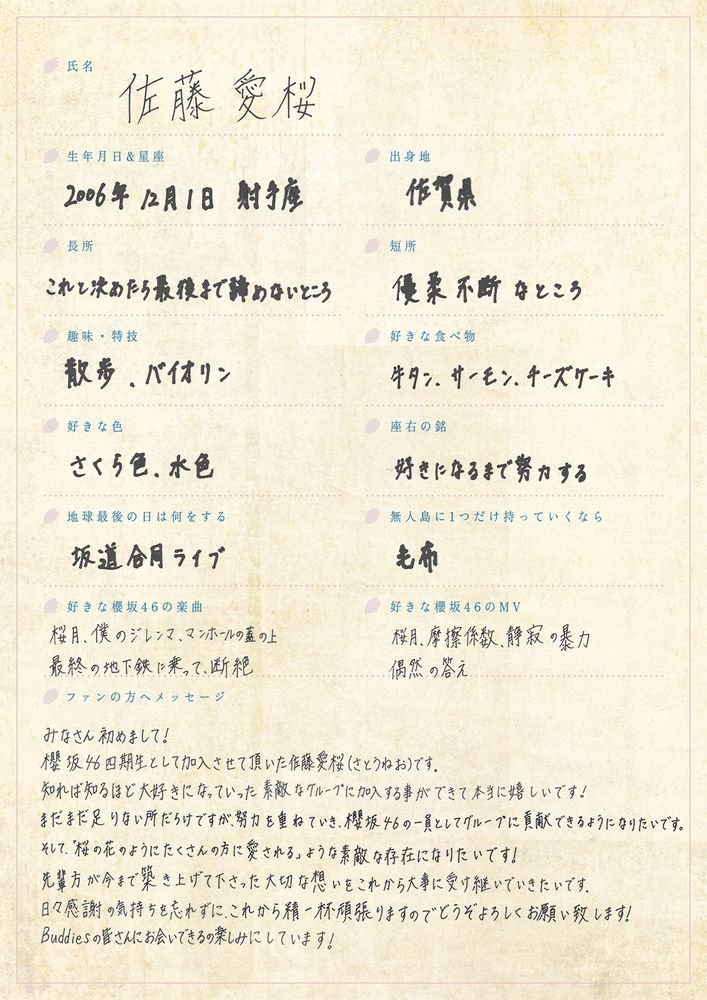 氏名
佐藤 愛桜
生年月日&星座
2006年 12月1日 射手座
出身地
佐賀県
長所
これと決めたら最後まで諦めないところ
短所
優柔不断なところ
趣味・特技
散歩、バイオリン
好きな食べ物
牛タン、サーモン、チーズケーキ
好きな色
さくら色、水色
座右の銘
好きになるまで努力する
地球最後の日は何をする
坂道合同ライブ
無人島に1つだけ持っていくなら
毛布
好きな櫻坂46の楽曲
桜月、僕のジレンマ、マンホールの蓋の上
最終の地下鉄に乗って、断絶
好きな櫻坂46のMV
桜月、摩擦係数、静寂の暴力
偶然の答え
ファンの方へメッセージ
みなさん初めまして!
櫻坂46四期生として加入させて頂いた佐藤愛桜(さとうねお)です。
知れば知るほど大好きになっていった素敵なグループに加入する事ができて本当に嬉しいです!
まだまだ足りない所だらけですが、努力を重ねていき、櫻坂46の一員としてグループに貢献できるようになりたいです。
そして、「桜の花のようにたくさんの方に愛される」ような素敵な存在になりたいです!
先輩方が今まで築き上げて下さった大切な想いをこれから大事に受け継いでいきたいです。
日々感謝の気持ちを忘れずに、これから精一杯頑張りますのでどうぞよろしくお願い致します!
Buddiesの皆さんにお会いできるの楽しみにしています!